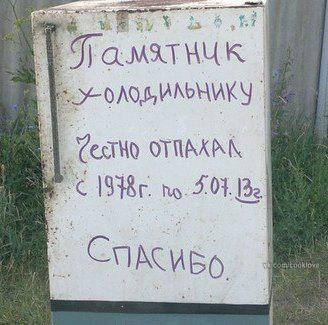 Памятник
холодильнику
Честно отпахал
с 1978г. по 5.07.13г.
Спасибо.
vk.com/cooklove